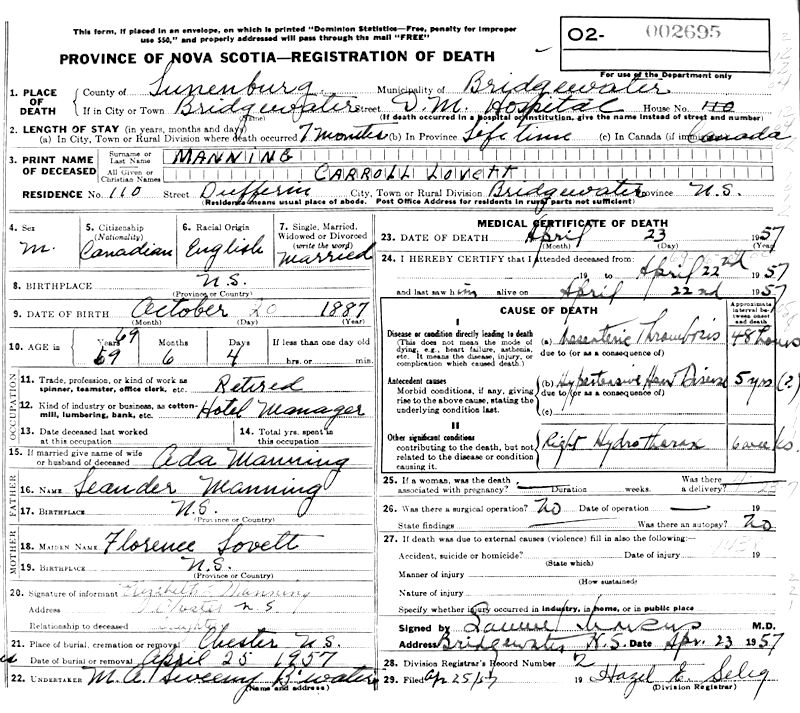 This form, if placed in an envelope, on which is printed "Dominion Statistics—Free, penalty for improper
use $50," and properly addressed will pass through ths mail "FREE"
O2- 002695
PROVINCE OF NOVA SCOTIA—REGISTRATION OF DEATH
For use of the Department only
1. PLACE OF DEATH County of Lunenburg Municipality of Bridgewater
If in City or Town Bridgewater Street D.M. Hospital House No. 110
(Name) (If death occurred in a hospital or institution, give name instead of street and number)
2. LENGTH OF STAY (in years, months and days)
(a) In City, Town or Rural Division where death occurred 7 months (b) In Province Life time (c) In Canada (if immigrant) Canada
3. PRINT NAME OF DECEASED Surname or Last Name MANNING
All Given or Christian Names CARROLL LOVETT
RESIDENCE No. 110 Street Dufferin City, Town or Rural Division Bridgewater Province N.S.
(Residence means usual place of abode. Post Office Address for residents in rural parts not sufficient)
4. Sex M.
5. Citizenship (Nationality) Canadian
6. Racial Origin English
7. Single, Married, Widowed or Divorced (write the word) Married
8. BIRTHPLACE N.S.
(Province or Country)
9. DATE OF BIRTH October 20 1887
(Month) (Day) (Year)
10. AGE in Years 69 69 Months 6 Days 4 If less than one day old
hrs. or min.
OCCUPATION
11. Trade, profession, or kind of work as spinner, teamster, office clerk, etc. Retired
12. Kind of industry or business, as cotton-mill, lumbering, bank, etc. Hotel Manager
13. Date deceased last worked at this occupation
14. Total yrs. spent in this occupation
15. If married give name of wife or husband of deceased Ada Manning
FATHER
16. NAME Leander Manning
17. BIRTHPLACE N.S.
(Province or Country)
MOTHER
18. MAIDEN NAME Florence Lovett
19. BIRTHPLACE N.S.
(Province or Country)
20. Signature of informant Elizabeth Manning
Address Chester N.S.
Relationship to deceased
21. Place of burial, cremation or removal Chester N.S.
Date of burial or removal April 25 1957
22. UNDERTAKER M.A. Sweeny B'water
(Name and address)
MEDICAL CERTIFICATE OF DEATH
23. DATE OF DEATH April 23 1957
(Month) (Day) (Year)
24. I HEREBY CERTIFY that I attended deceased from:
19 to April 22nd 1957
and last saw him alive on April 22nd 1957
CAUSE OF DEATH
Approximate interval between onset and death
I
Disease or condition directly leading to death
(This does not mean the mode of dying, e.g., heart failure, asthenia, etc. It means the disease, injury, or complication which caused death.)
(a) Mesenteric Thrombosis 48 hours
due to (or as a consequence of)
Antecedent causes
Morbid conditions, if any, giving rise to the above cause, stating the underlying condition last.
(b) Hypertensive Heart Disease 5 yrs (?)
due to (or as a consequence of)
(c)
II
Other significant conditions contributing to the death, but not related to the disease or condition causing it.
Right Hydrothorax 6 weeks.
25. If a woman, was the death associated with pregnancy? Duration weeks. Was there a delivery?
26. Was there a surgical operation? No Date of operation — 19
State findings Was there an autopsy? No
27. If death was due to external causes (violence) fill in also the following:—
Accident, suicide or homicide? Date of injury 19
(State which)
Manner of injury
(How sustained)
Nature of injury
Specify whether injury occurred in industry, in home, or in public place
Signed by M.D.
Address Bridgewater N.S. Date Apr. 23 1957
28. Division Registrar's Record Number 2
29. Filed Apr 25/57 19 Hazel E. Selig
(Division Registrar)